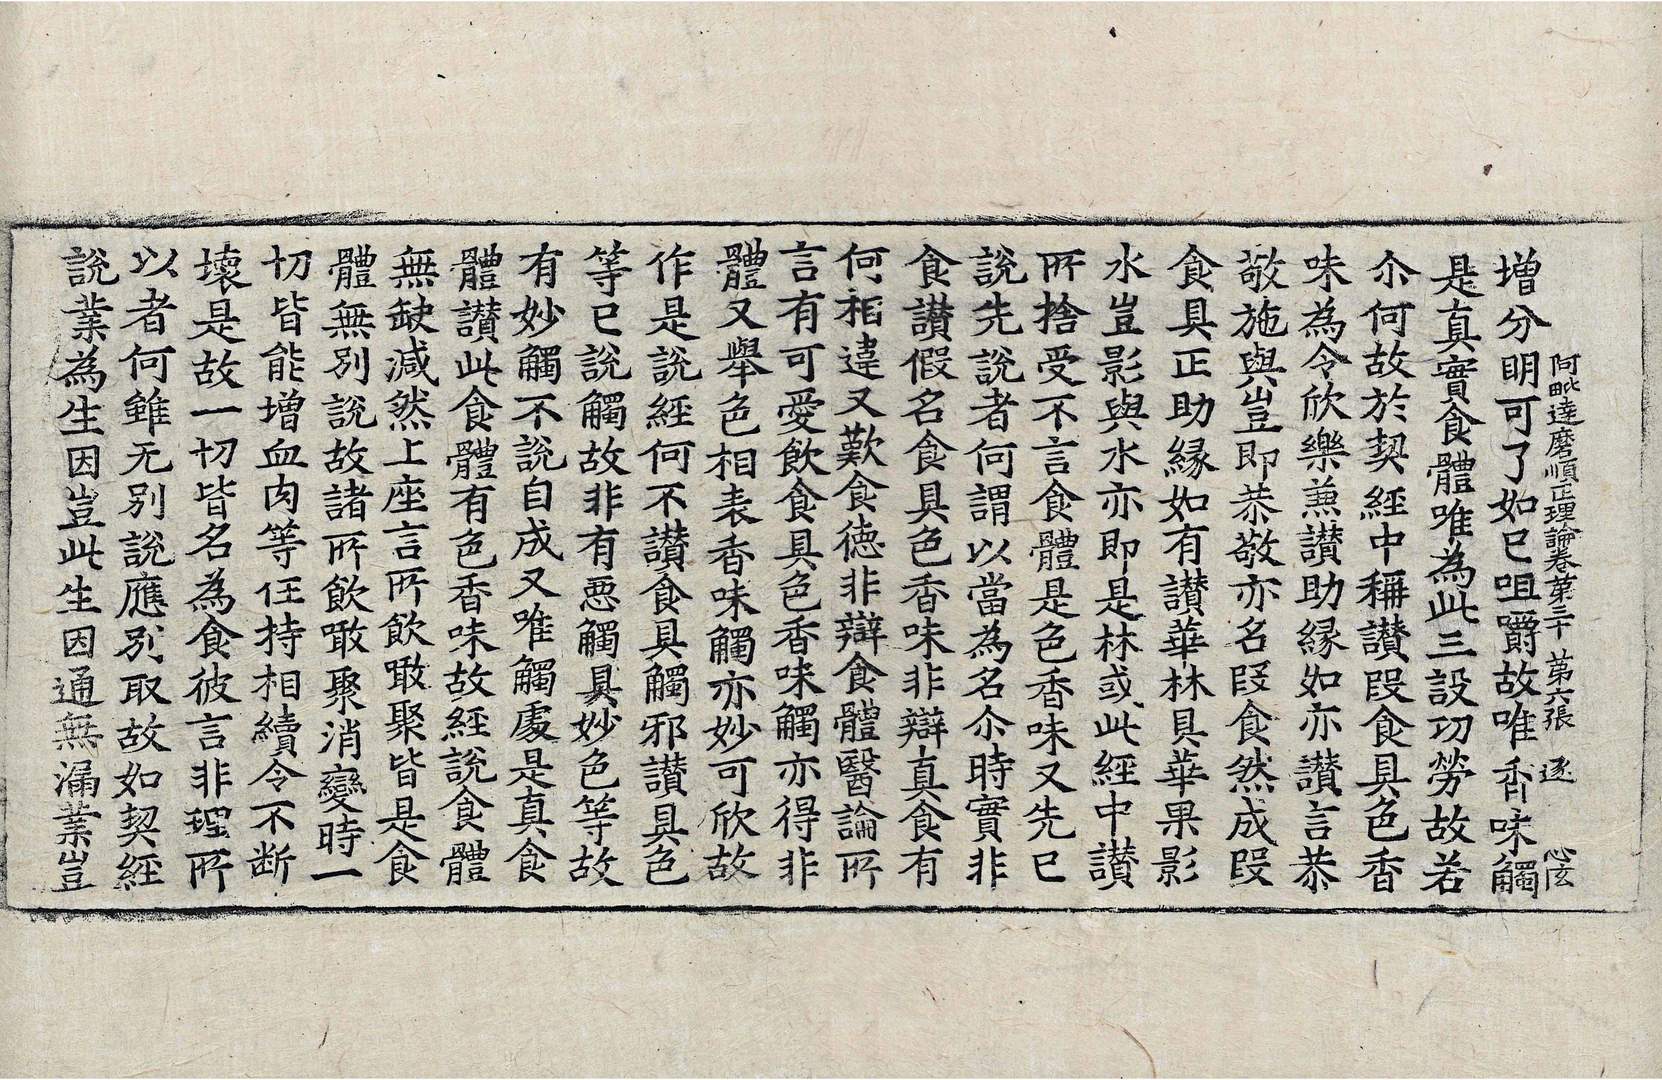 阿毗達磨順正理論卷第三十 第六張 逐 心玄
增分明可了如已咀嚼故唯香味觸
是真實食體唯為此三設功勞故若
尒何故於契經中稱讚段食具色香
味為令欣樂兼讚助緣如亦讚言恭
敬施與豈即恭敬亦名段食然成段
食具正助緣如有讚華林具華果影
水豈影與水亦即是林或此經中讚
所捨受不言食體是色香味又先已
說先說者何謂以當為名尒時實非
食讚假名食具色香味非辯真食有
何相違又歎食德非辯食體醫論所
言有可愛飲食具色香味觸亦得非
體又舉色相表香味觸亦妙可欣故
作是說經何不讚食具觸邪讚具色
等已說觸故非有惡觸具妙色等故
有妙觸不說自成又唯觸處是真食
體讚此食體有色香味故經說食體
無缺減然上座言所飲噉聚皆是食
體無別說故諸所飲噉聚消變時一
切皆能增血肉等任持相續令不斷
壞是故一切皆名為食彼言非理所
以者何雖无別說應別取故如契經
說業為生因豈此生因通無漏業豈